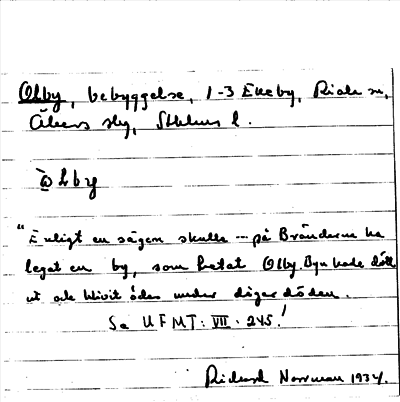 Olby, bebyggelse, 1-3 Ekeby, Riala sn,
Åkers sky, Sthlms l.
òlby
"Enligt en sägen skulle --- på Bränderna ha
legat en by, som hetat Olby. Byn hade dött
ut och blivit öde under digerdöden.
Se UFMT: VII: 245!
Rickard Norrman 1934.